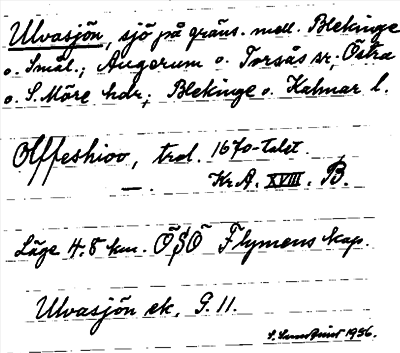 Ulvasjön, sjö på gräns. mell. Blekinge
o. Smål.; Augerum o. Torsås sr, Östra
o. S. Möre hdr; Blekinge o. Kalmar l.
Olffeshioo, trol. 1670-talet.
— . Kr.A. XVIII. B.
Läge 4.8 km. ÖSÖ Flymens kap.
Ulvasjön ek. 9.11.
1936.